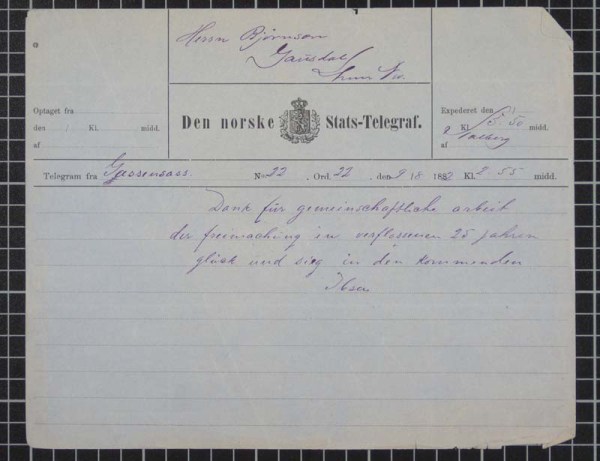 Herrn Bjørnson
Gausdal
Optaget fra
Expederet den
den Kl. midd.
Kl. 5.50 midd.
af
af
Den norske Stats-Telegraf.
Telegram fra Gossensass. No. 22. Ord. 22. den 9/8 1882 Kl. 2.55 midd.
Dank für gemeinschaftliche arbeit
der freimachung in verflossenen 25 jahren
glück und sieg in den kommenden
Ibsen